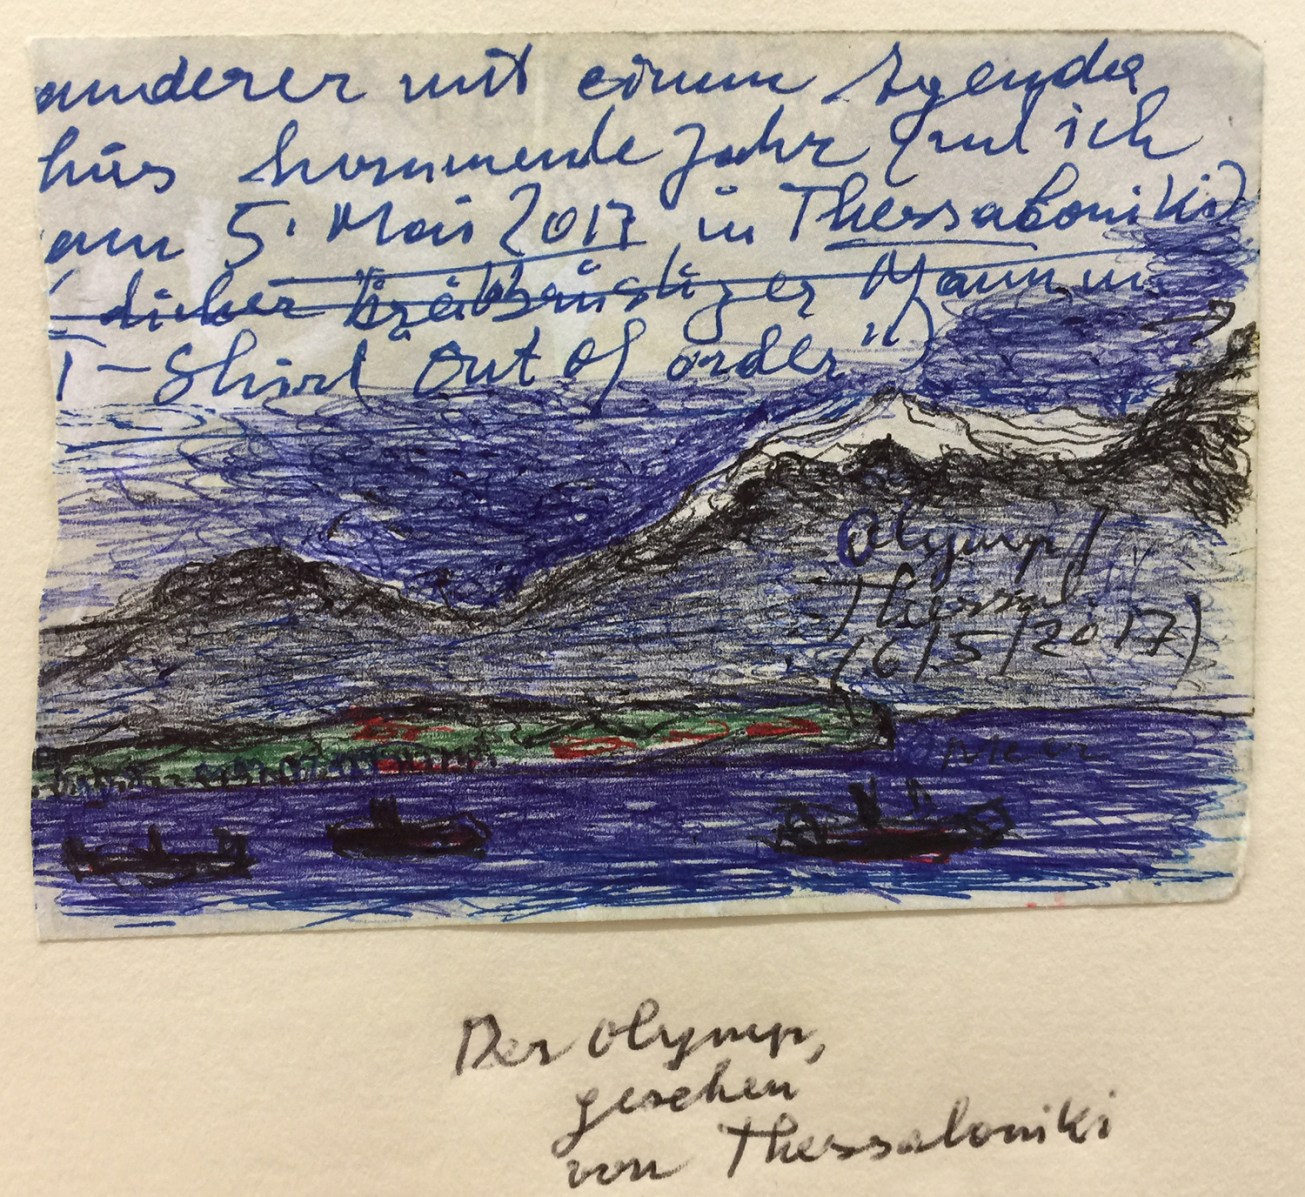 anderer mit einem Agenda
fürs kommende Jahr (und ich
am 5. Mai 2017 in Thessaloniki)
(dicker Mann im
T-Shirt "Out of order")
Olymp /
Thessal.
(6/5/2017)
Der Olymp,
gesehen
von Thessaloniki